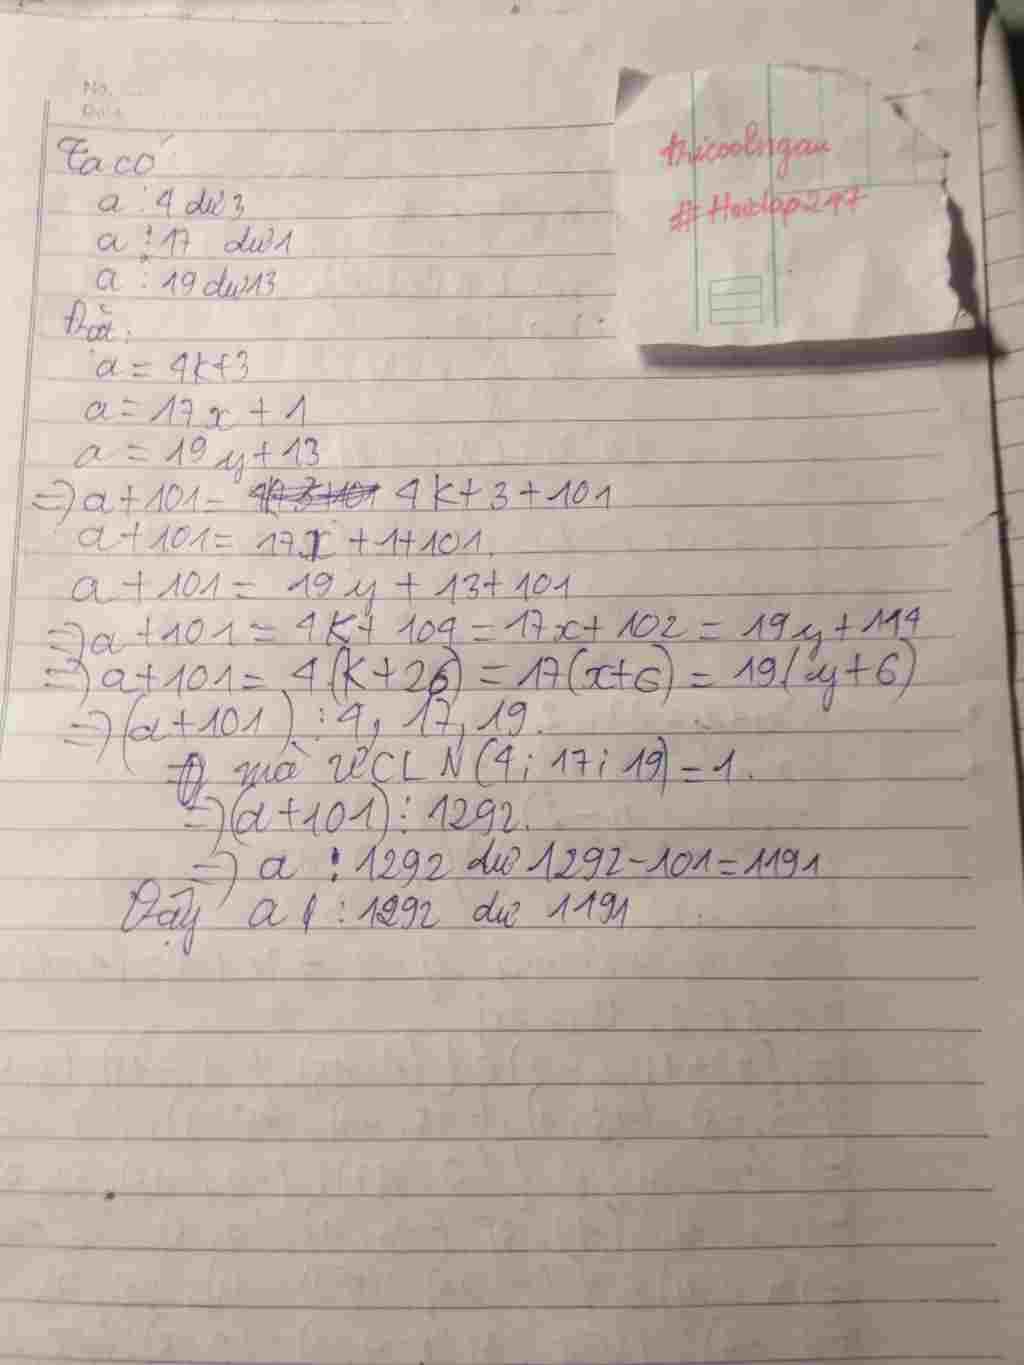 No.
Date
Ta có
a : 4 dư 3
a : 17 dư 1
a : 19 dư 13
a = 4k+3
a = 17x + 1
a = 19y + 13
=> a + 101 = 4k + 3 + 101
a + 101 = 17x + 1 + 101.
a + 101 = 19y + 13 + 101
=> a + 101 = 4k + 104 = 17x + 102 = 19y + 114
=> a + 101 = 4(k + 26) = 17(x + 6) = 19(y + 6)
=> (a + 101) ⋮ 4, 17, 19.
mà ƯCLN(4; 17; 19) = 1.
=> (a + 101) ⋮ 1292.
=> a : 1292 dư 1292 - 101 = 1191
Vậy a : 1292 dư 1191
thicoolngau
#Hoidap247